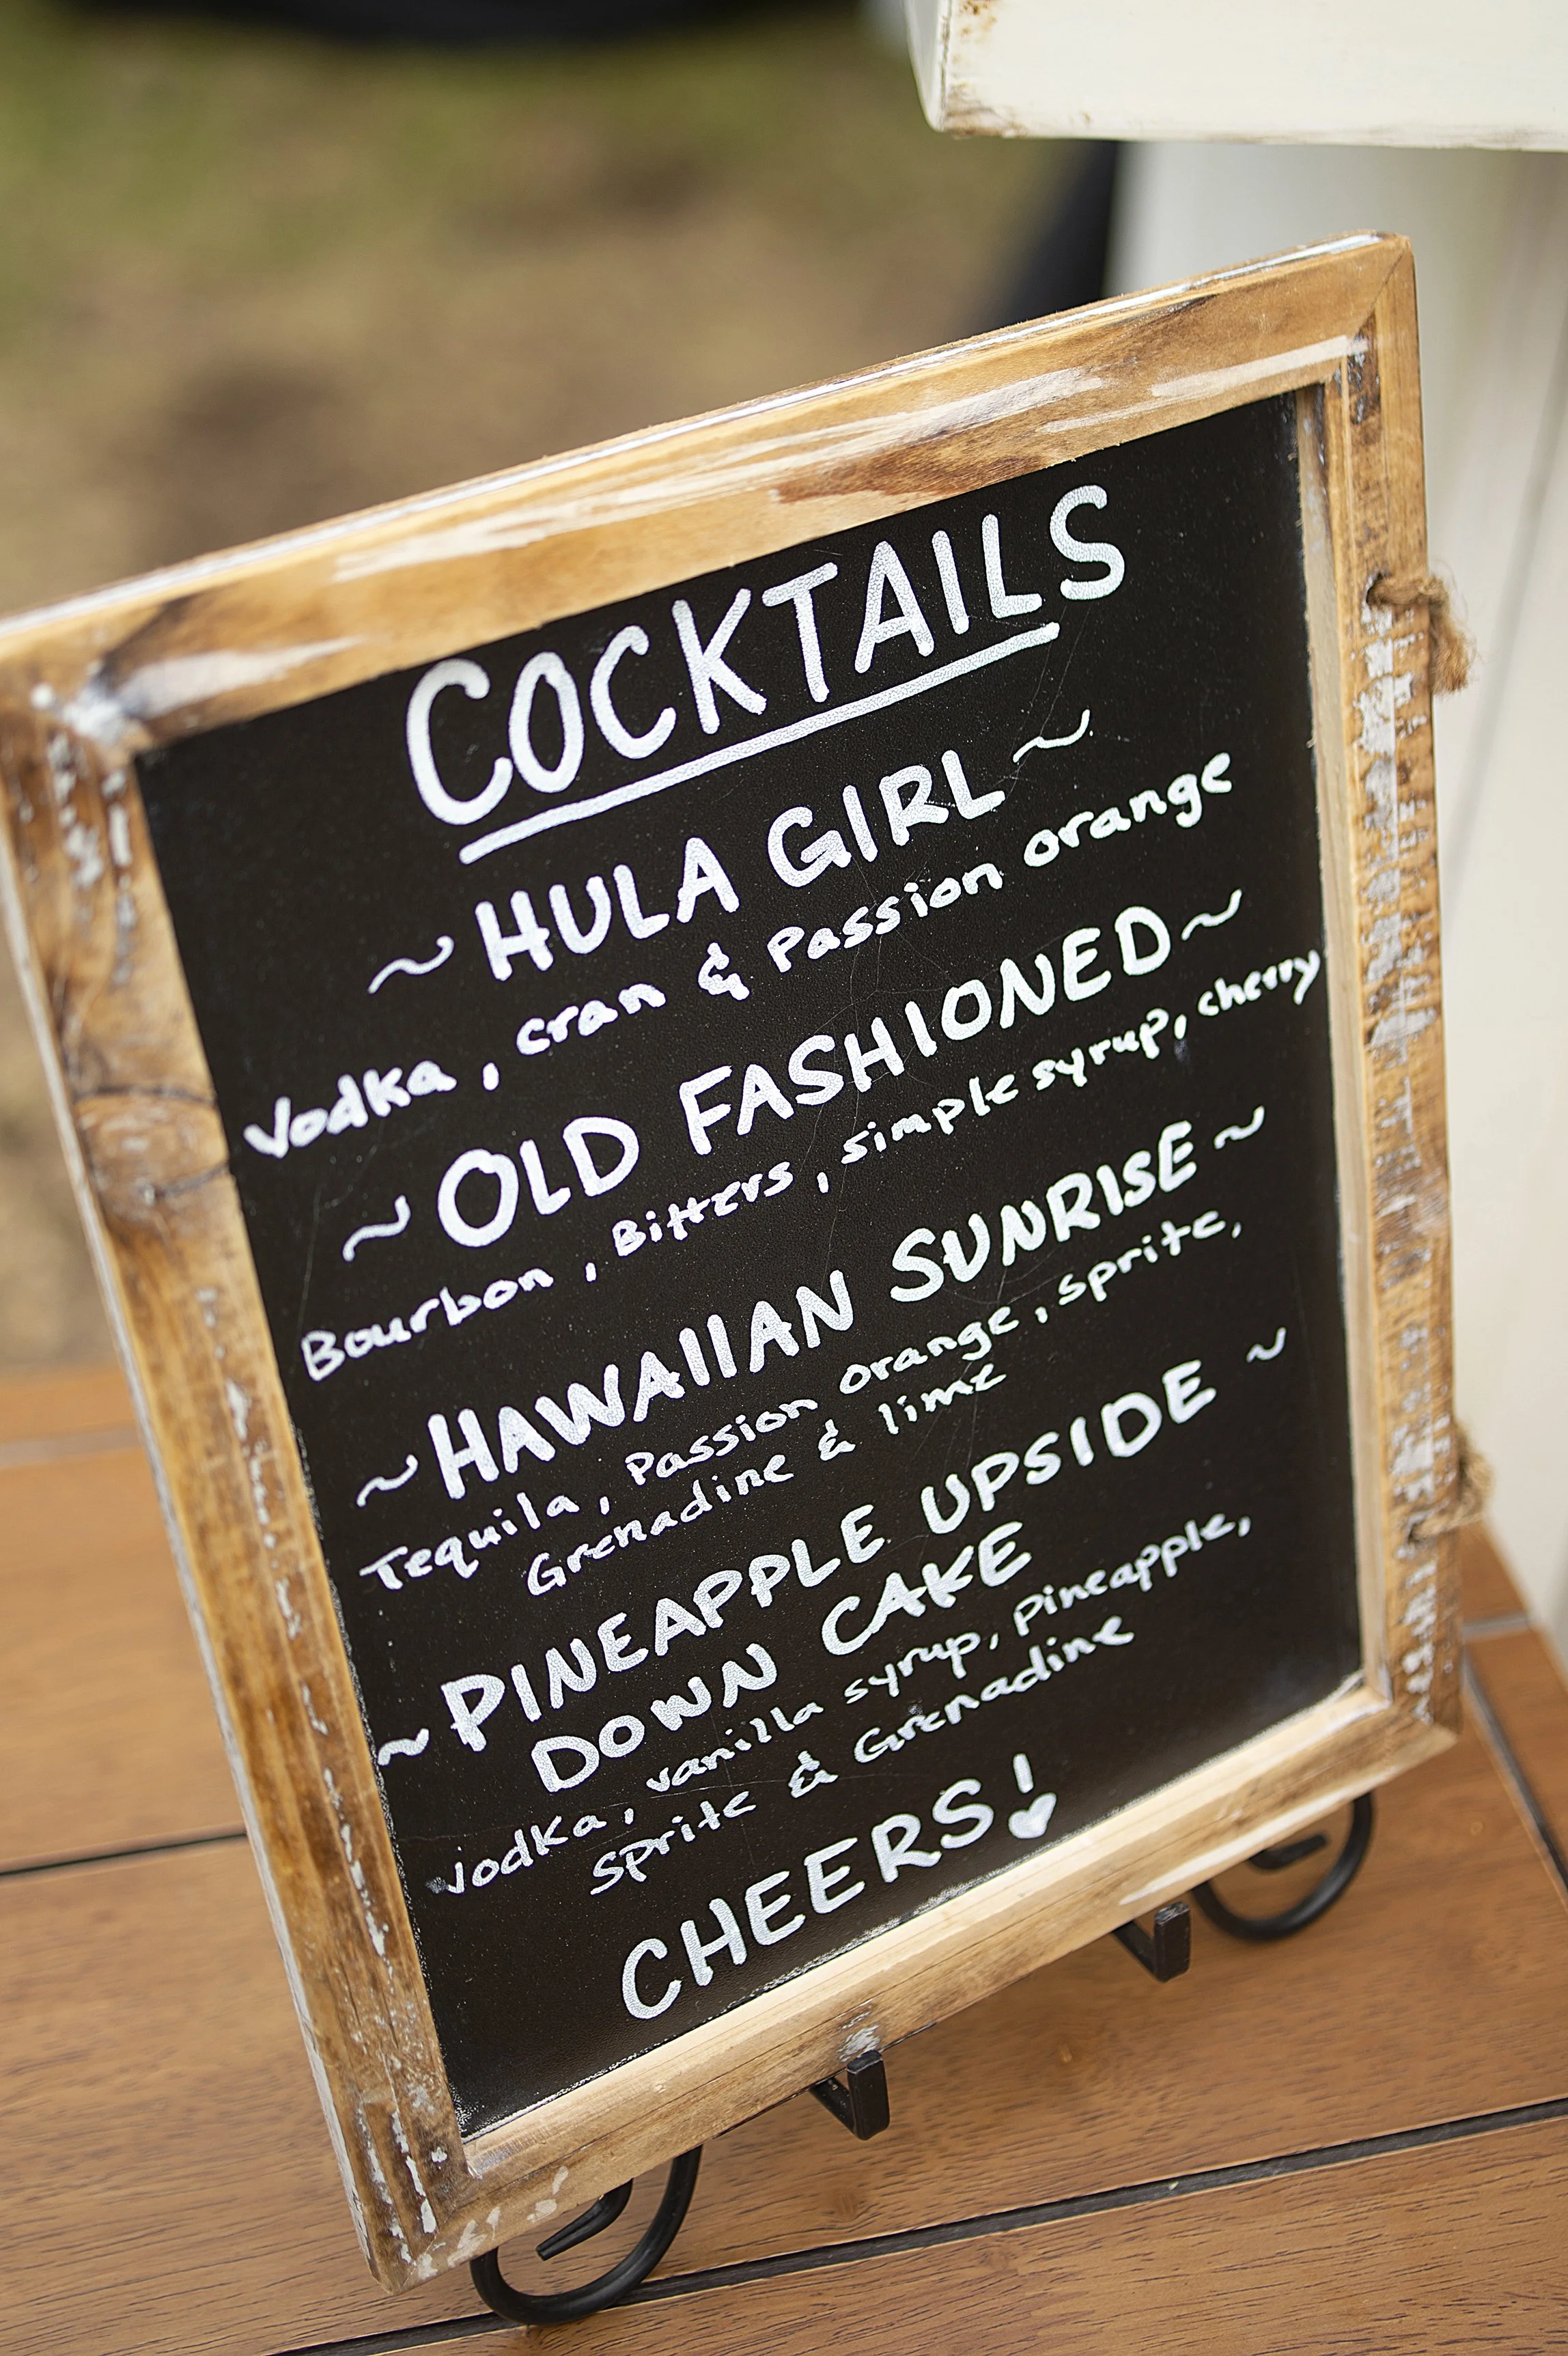 COCKTAILS
~ HULA GIRL ~
Vodka, cran & Passion orange
~ OLD FASHIONED ~
Bourbon, Bitters, simple syrup, cherry
~ HAWAIIAN SUNRISE ~
Tequila, Passion orange, sprite,
Grenadine & lime
~ PINEAPPLE UPSIDE ~
DOWN CAKE
Vodka, vanilla syrup, Pineapple,
Sprite & Grenadine
CHEERS!